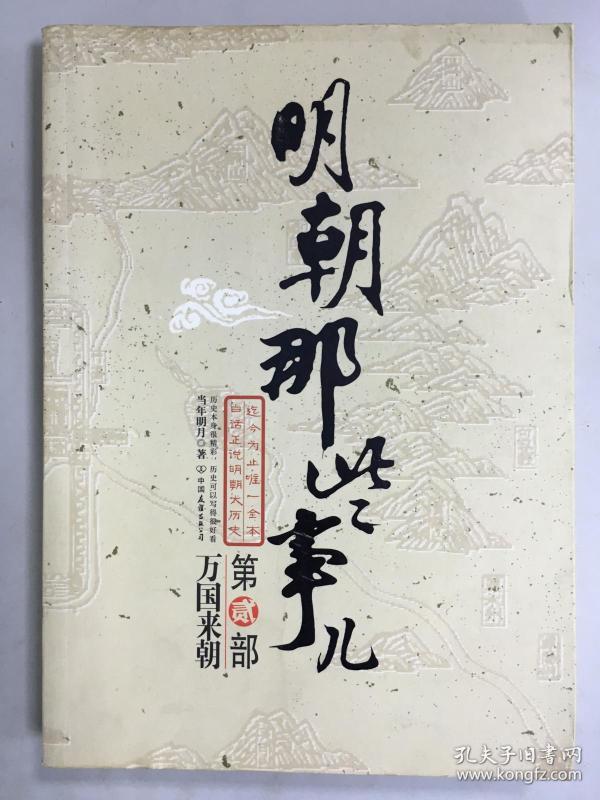 明朝那些事儿
迄今为止唯一全本
白话正说明朝大历史
历史本身很精彩,历史可以写得很好看
当年明月◎著
中国友谊出版公司
第贰部
万国来朝
孔夫子旧书网
www.kongfz.com